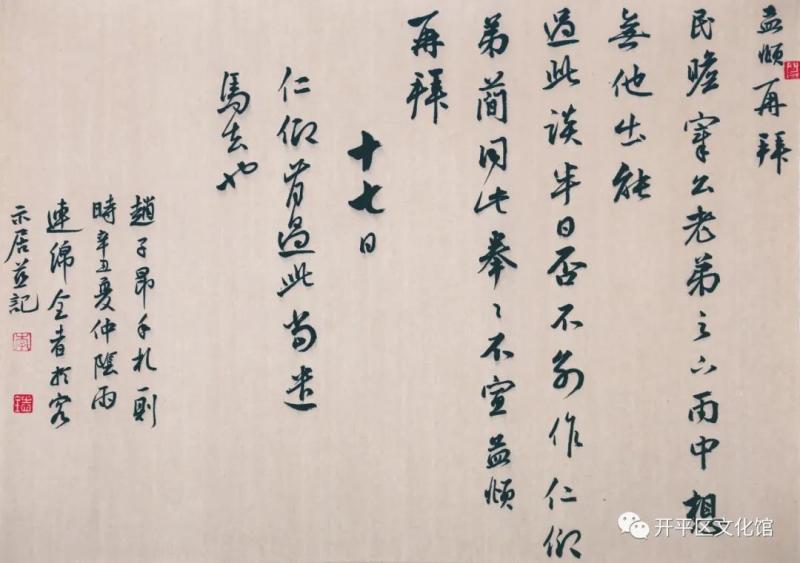 孟頫再拜
民瞻宰公老弟足下雨中想
無他出能
過此談半日否不別作仁卿
弟簡同此拳〻不宣孟頫
再拜
十七日
仁卿肯過此當遣
馬去也
趙子昂手札一則
時辛丑夏仲陰雨
連綿
示居並記
开平区文化馆